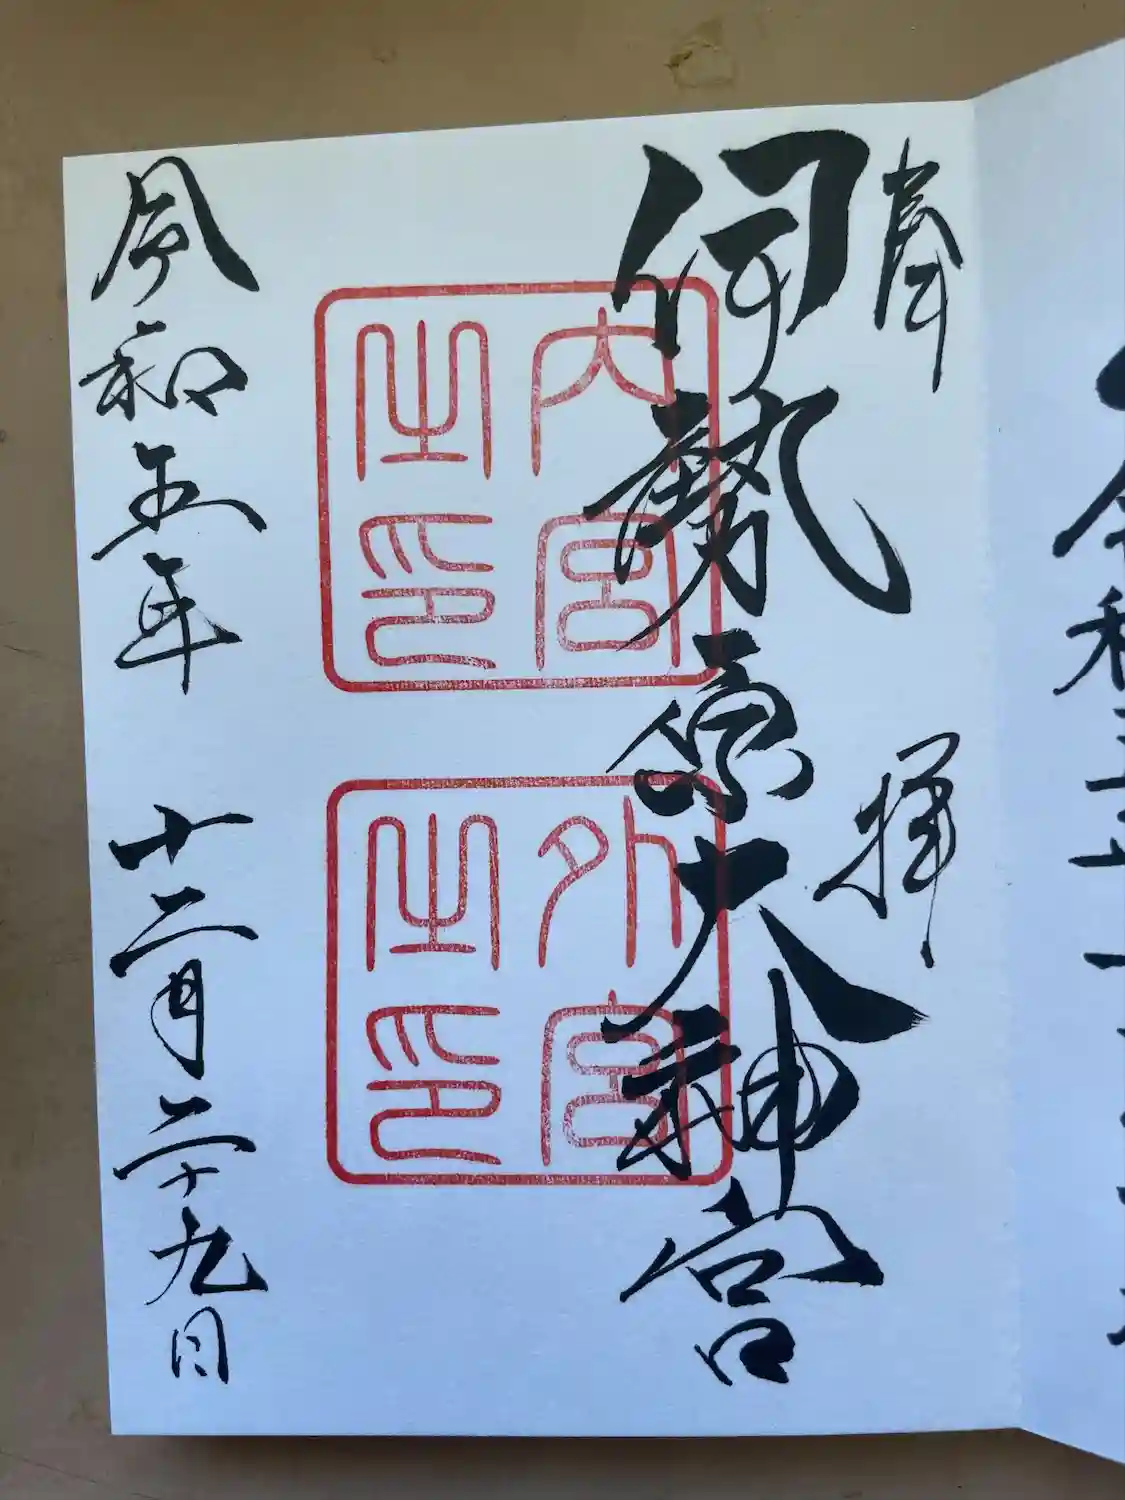 奉拝
伊勢原大神宮
内宮之印
外宮之印
令和五年十二月二十九日